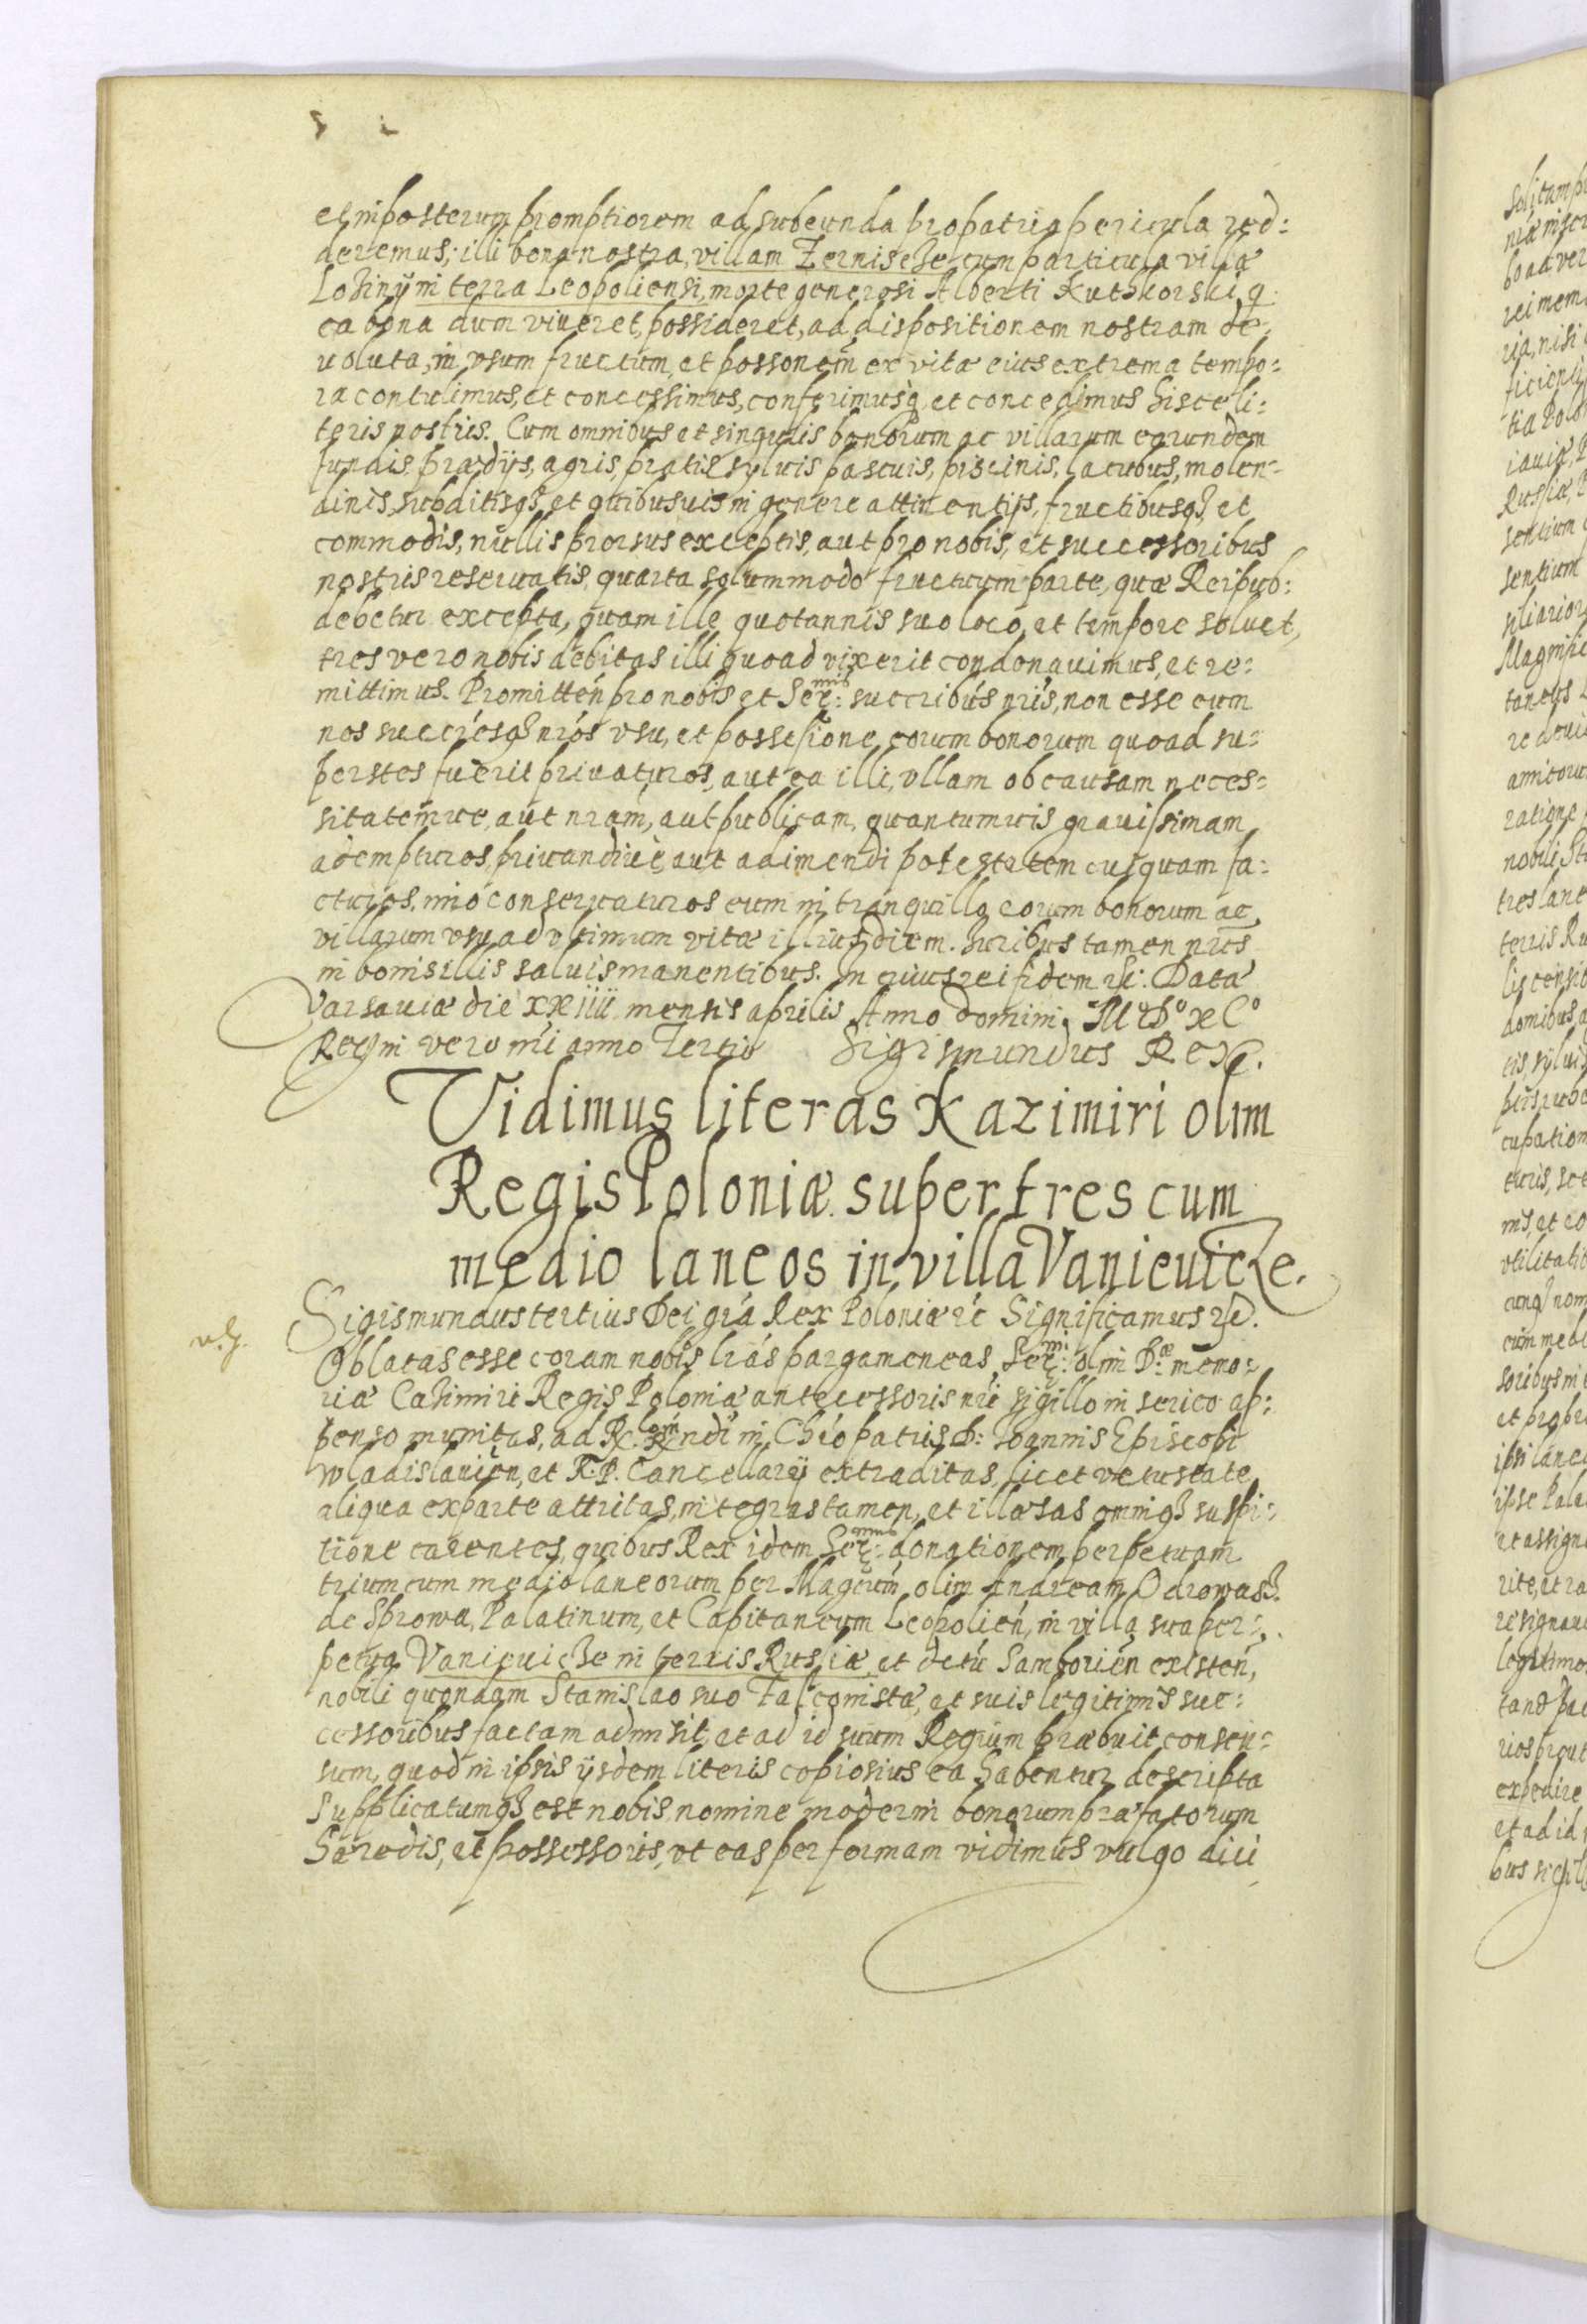 et in posterum promptiorem ad subeunda pro patria pericula red:
deremus; illi bona nostra, villam Zerniscze cum particula villæ
Lozinÿ in terra Leopoliensi, morte generosi Alberti q
ea bona dum viveret, possideret, ad dispositionem nostram de
voluta, in usum fructum, et possonem ex vitæ eius extrema tempo:
ra contulimus, et concessimus, conferimusq et concedimus hisce li:
teris nostris. Cum omnibus et singulis bonorum ac villarum earundem
fundis prædijs, agris, pratis, syluis pascuis, piscinis, lacubus, molen:
dinis, subditisq et quibusuis in genere attinentijs, fructibusq et
commodis, nullis prorsus exceptis, aut pro nobis, et successoribus
nostris reseruatis, quarta solummodo fructuum parte, quæ Reipub:
debetur excepta, quam ille quotannis suo loco, et tempore soluet,
tres vero nobis debitas illi quoad vixerit condonauimus, et re:
mittimus. Promitten pro nobis et Ser:mis succribus nris, non esse eum
nos succresq nros usu, et possessione eorum bonorum quoad su:
perstes fuerit priuaturos, aut ea illi, ullam ob causam neces:
sitatemue, aut nram, aut publicam, quantumuis grauissimam
adempturos, priuandiue, aut adimendi potestatem cuiquam fa:
cturos, imo conseruaturos eum in tranquillo eorum bonorum ac
villarum usu ad ultimum vitæ illius diem. Iuribus tamen nris
in bonis illis saluis manentibus. In cuius rei fidem &c: Data
Varsauiæ die xxiiii mensis aprilis Anno domini MoDoxCo
Regni vero nri anno Tertio Sigismundus Rex.
Vidimus literas Kazimiri olim
Regis Poloniæ super tres cum
medio laneos in villa Vanieuicze.
Sigismundus tertius Dei gra Rex Poloniæ &c Significamus &c.
Oblatas esse coram nobis lras pargameneas, Ser:mi olim D:æ memo:
riæ Cazimiri Regis Poloniæ antecessoris nri sigillo in serico ap:
penso munitas, ad in Chro patris D: Ioannis Episcopi
Wladislauien, et R: P. Cancellarij extraditas, licet vetustate
aliqua ex parte attritas, integras tamen, et illæsas omniq suspi:
tione carentes, quibus Rex idem Ser:mus donationem perpetuam
trium cum medio laneorum per Magcum olim Andream Odrowasz
de Sprowa, Palatinum, et Capitaneum Leopolien, in villa sua per:
petua Vanieuicze in terris Russiæ, et dctu Samborien existen,
nobili quondam Stanislao suo Falconistæ, et suis legitimis suc:
cessoribus factam admisit, et ad id suum Regium præbuit consen:
sum, quod in ipsis ijsdem literis copiosius ea habentur descripta
Supplicatumq est nobis nomine moderni bonorum præfatorum
Hæredis, et possessoris, ut eas per formam vidimus vulgo dici